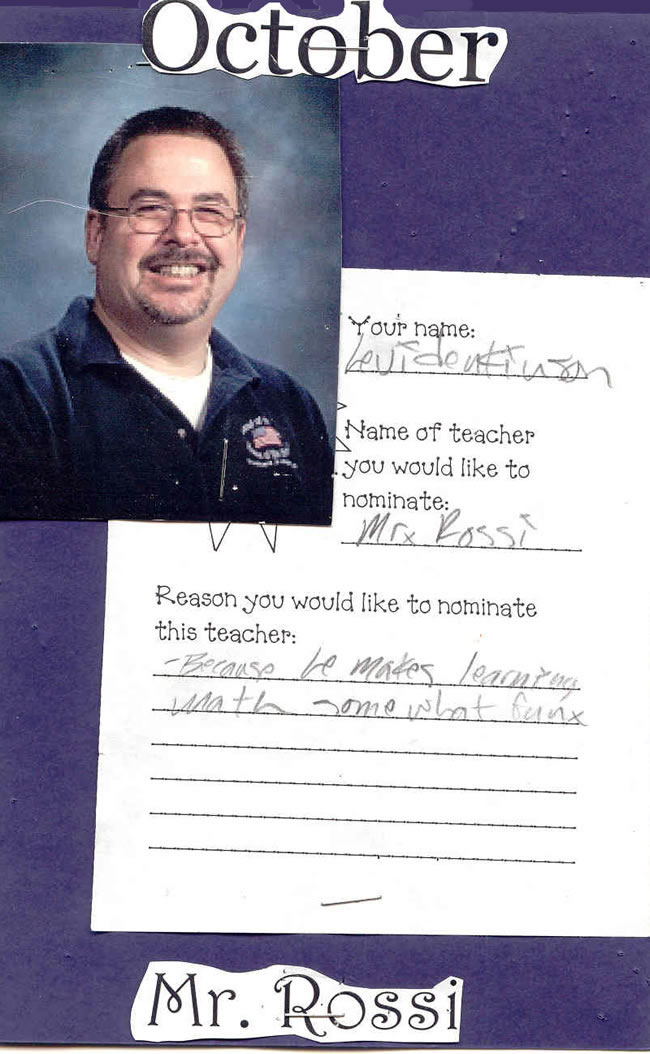 October
Your name:
Levi denkinson
Name of teacher
you would like to
nominate:
Mrx Rossi
Reason you would like to nominate
this teacher:
-Because he makes learning
math somewhat funx
Mr. Rossi